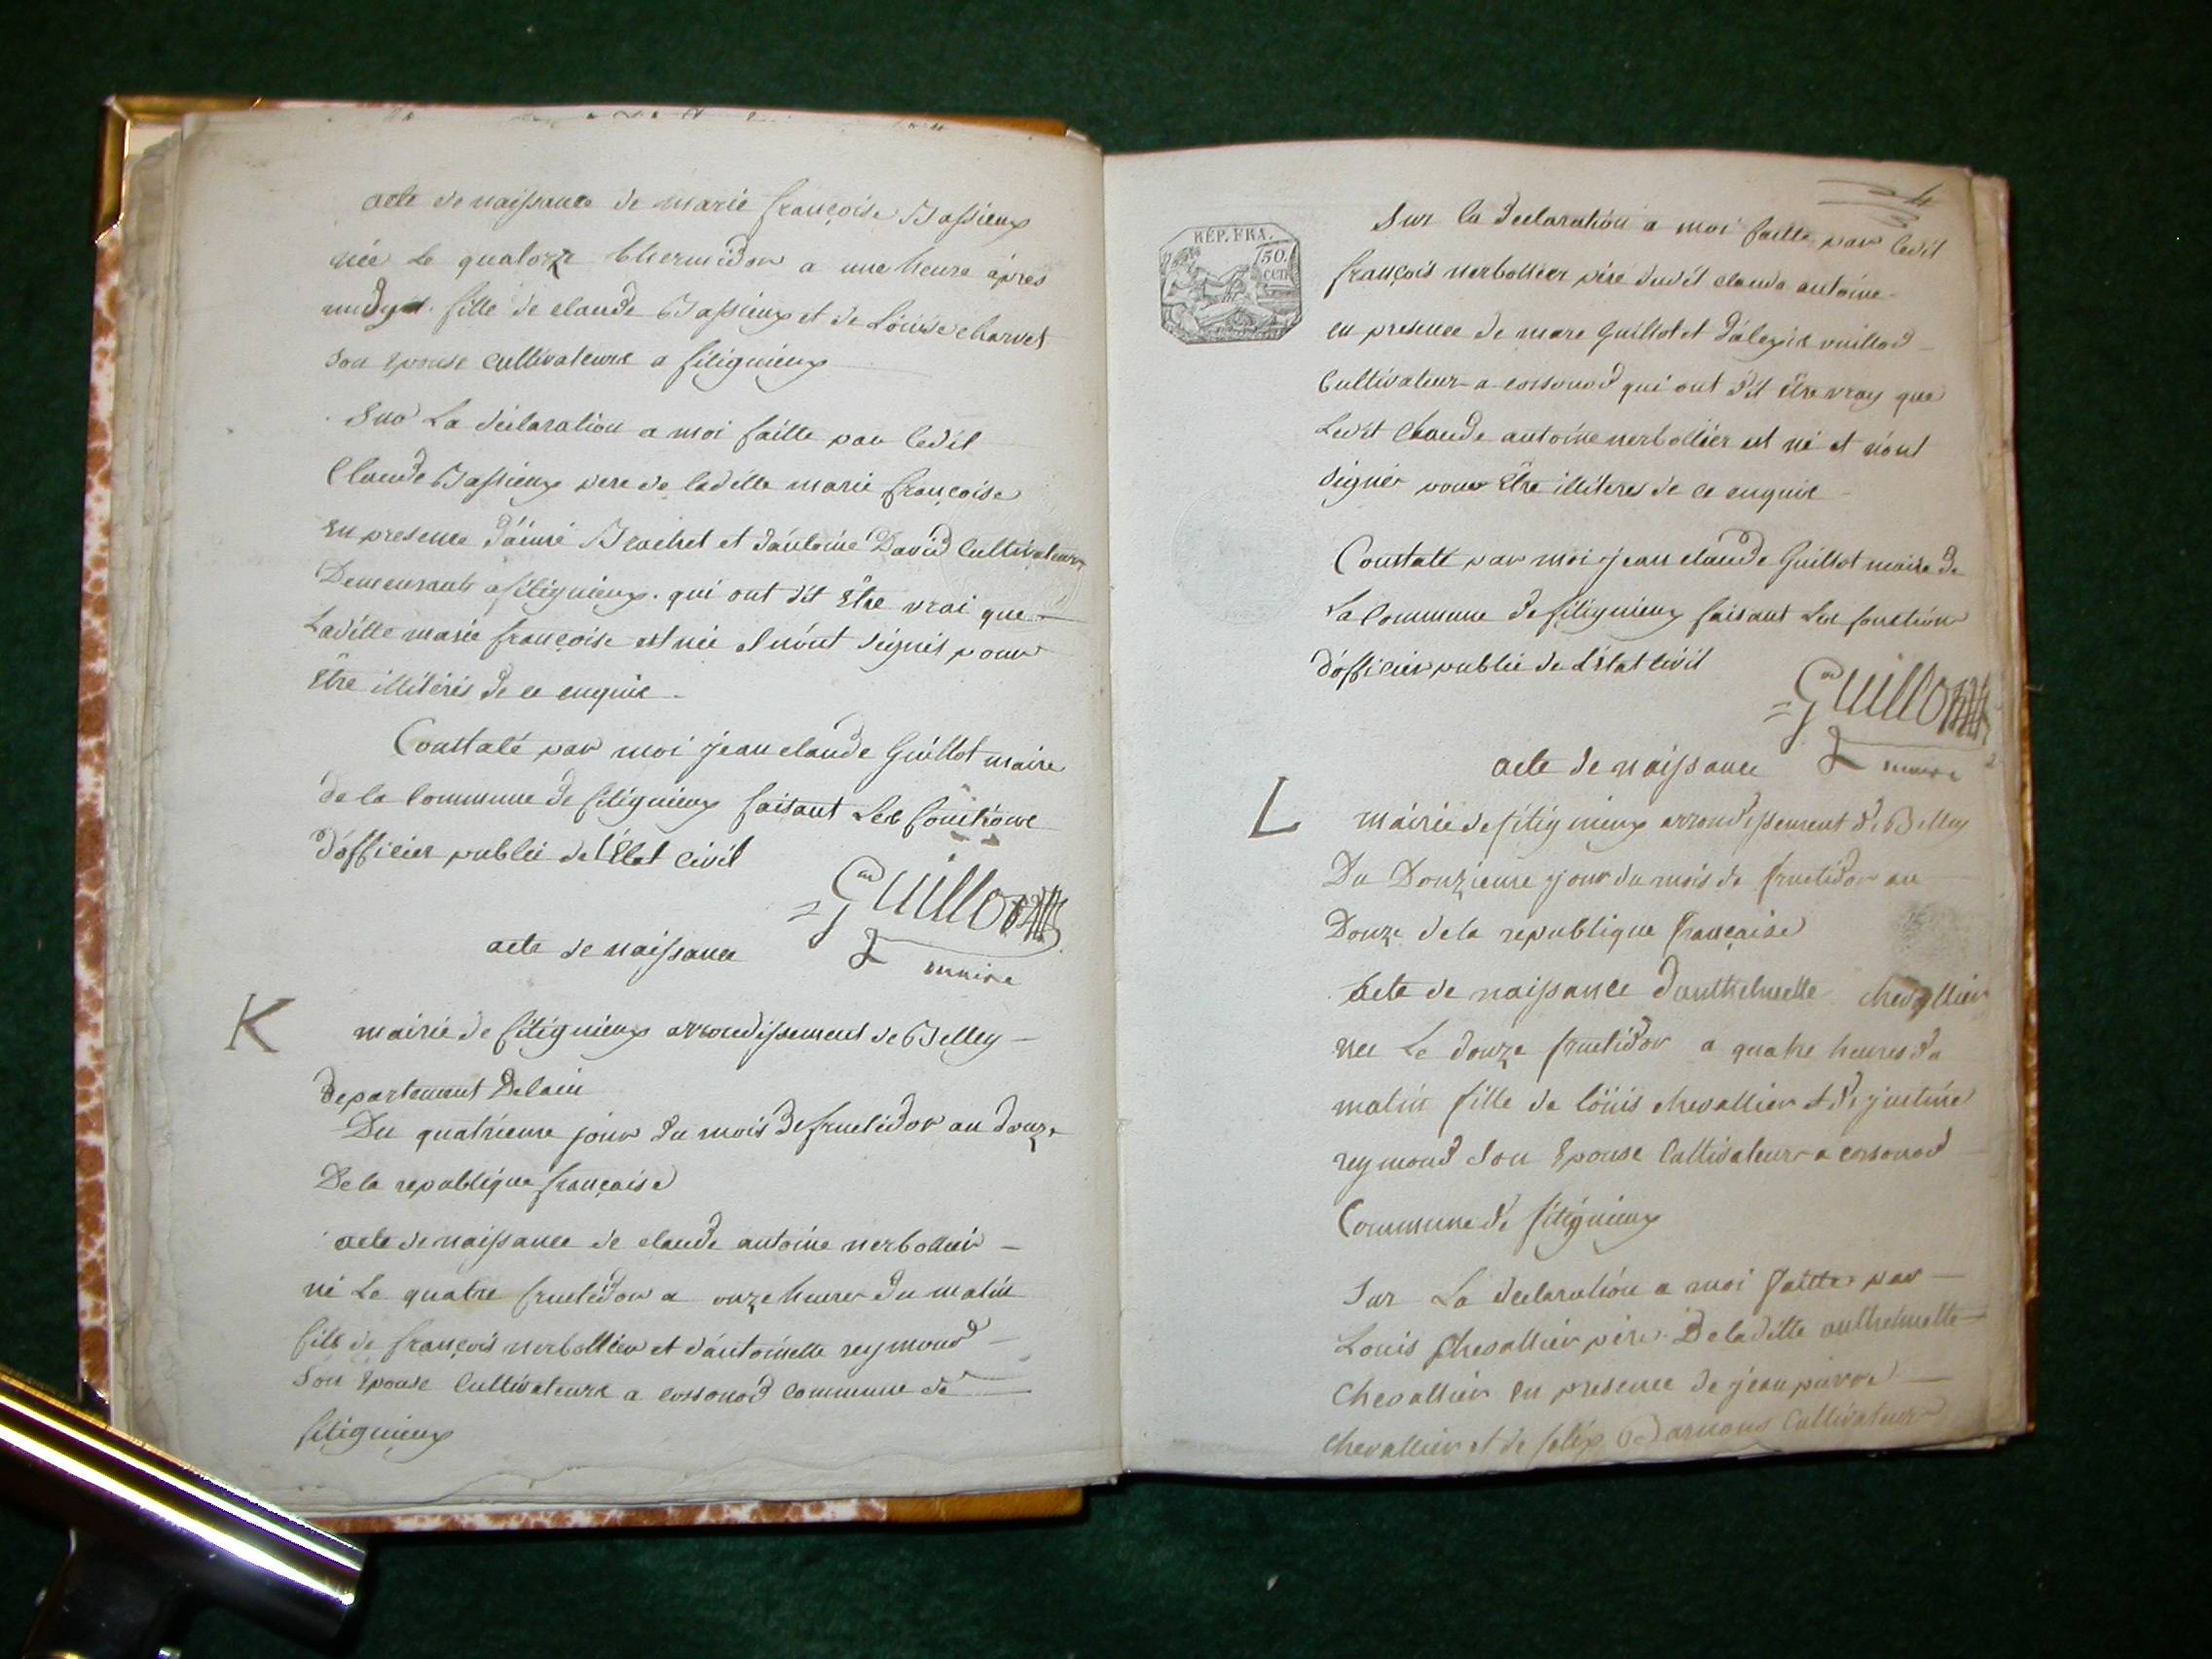 acte de naissance de marie françoise Bassieux
née le quatorze thermidor a une heure après
midy fille de claude Bassieux et de Louise charvet
son epouse cultivateurs a fitignieux
Sur La déclaration a moi faitte par ledit
Claude Bassieux pere de laditte marie françoise
en presence d'aimé Brachet et d'antoine David Cultivateurs
Demeurants a fitignieux qui ont dit être vrai que
Laditte marie françoise est née et n'ont signés pour
être illitérés de ce enquis
Constaté par moi jean claude Guillot maire
de la Commune de fitignieux faisant Les fonctions
d'officier public de l'état civil
Guillot
maire
acte de naissance
K
mairie de fitignieux arrondissement de Belley
departement Delain
Du quatrieme jour du mois de fructidor an douze
De la republique française
acte de naissance de claude antoine nerbollier
né Le quatre fructidor a onze heures du matin
fils de françois nerbollier et d'antoinette reymond
son epouse Cultivateurs a cossonod commune de
fitignieux
4
RÉP. FRA.
50
cen
Sur la declaration a moi faitte par ledit
françois nerbollier père dudit claude antoine
en presence de marc Guillot et d'alexis vuillod
Cultivateur a cossonod qui ont dit être vray que
Ledit Claude antoine nerbollier est né et n'ont
signés pour être illiteres de ce enquis
Constaté par moi jean claude Guillot maire de
La Commune de fitignieux faisant Les fonctions
d'officier public de l'état civil
Guillot
maire
acte de naissance
L
mairie de fitignieux arrondissement de Belley
Du Douzieme jour du mois de fructidor an
Douze de la republique française
Acte de naissance d'anthelmette chevallier
née Le douze fructidor a quatre heures du
matin fille de loüis chevallier et de justine
reymond son epouse Cultivateurs a cossonod
Commune de fitignieux
Sur La declaration a moi faitte par
Louis Chevallier père De laditte anthelmette
Chevallier en presence de jean pierre
chevallier et de felix Cultivateurs